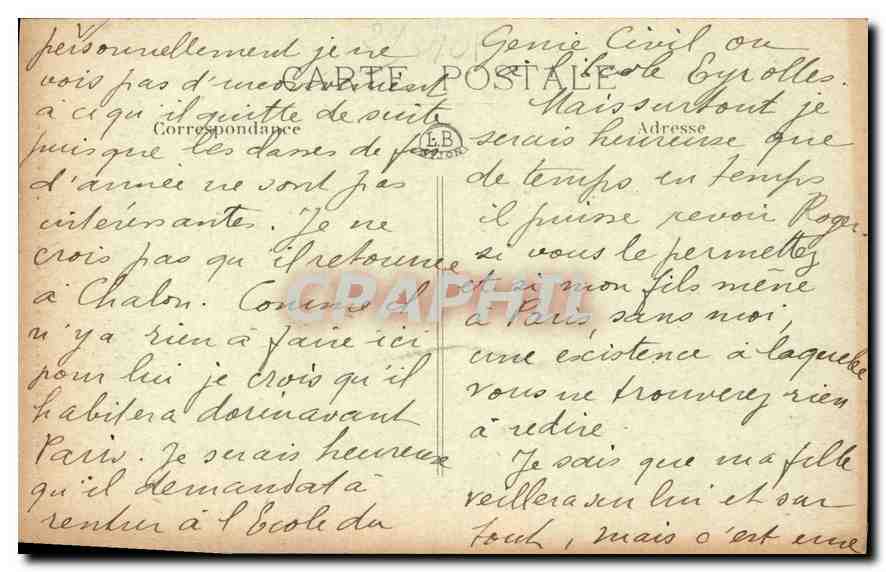 personnellement je ne
vois pas d'inconvénient
à ce qu'il quitte de suite
puisque les classes de fin
d'année ne sont pas
intéressantes. Je ne
crois pas qu'il retourne
à Chalon. Comme il
n'y a rien à faire ici
pour lui je crois qu'il
habitera dorénavant
Paris. Je serais heureuse
qu'il demandat à
rentrer à l'Ecole du
Génie Civil ou
à l'école Eyrolles.
Mais surtout je
serais heureuse que
de temps en temps
il puisse revoir Roger
si vous le permettez
et si mon fils mène
à Paris, sans moi,
une existence à laquelle
vous ne trouverez rien
à redire.
Je sais que ma fille
veillera sur lui et sur
tout, mais c'est une
CARTE POSTALE
Correspondance
Adresse
L.B
CPAPHIL